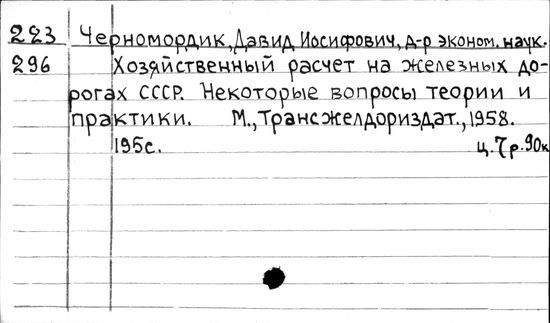 223 Черномордик, Давид Иосифович, д-р эконом. наук.
296 Хозяйственный расчет на железных до-
рогах СССР. Некоторые вопросы теории и
практики. М., Трансжелдориздат., 1958.
195с. ц. 7р. 90к